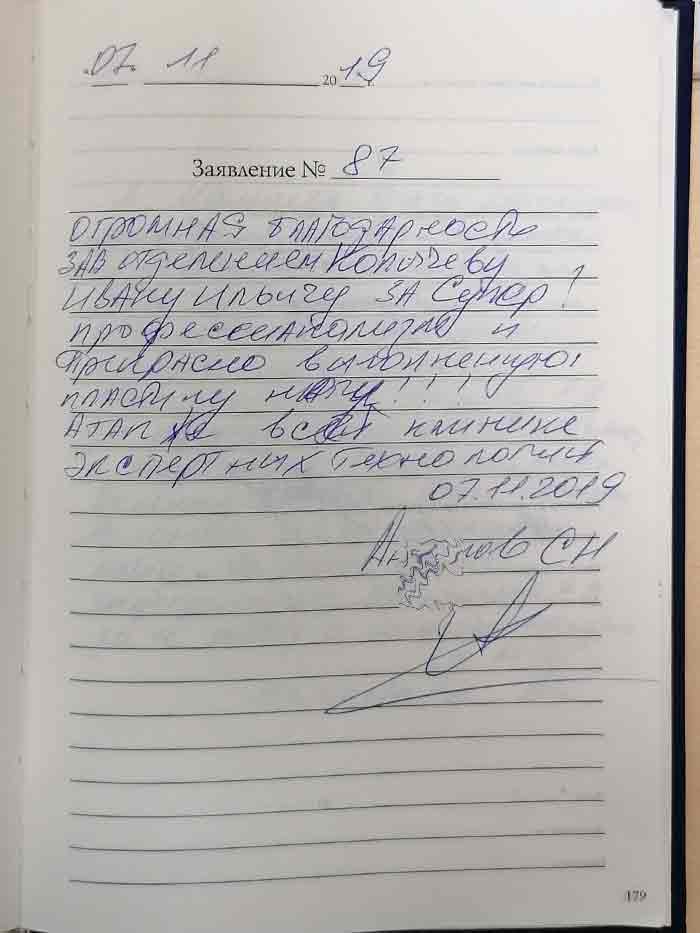 07. 11 2019 г.
Заявление № 87
ОГРОМНАЯ БЛАГОДАРНОСТЬ
ЗАВ отделением Копычеву
Ивану Ильичу ЗА Супер!
профессионализм и
Прикрасно выполненную
пластику !!!
всей клинике
Экспертных Технологий
07.11.2019
СН
179